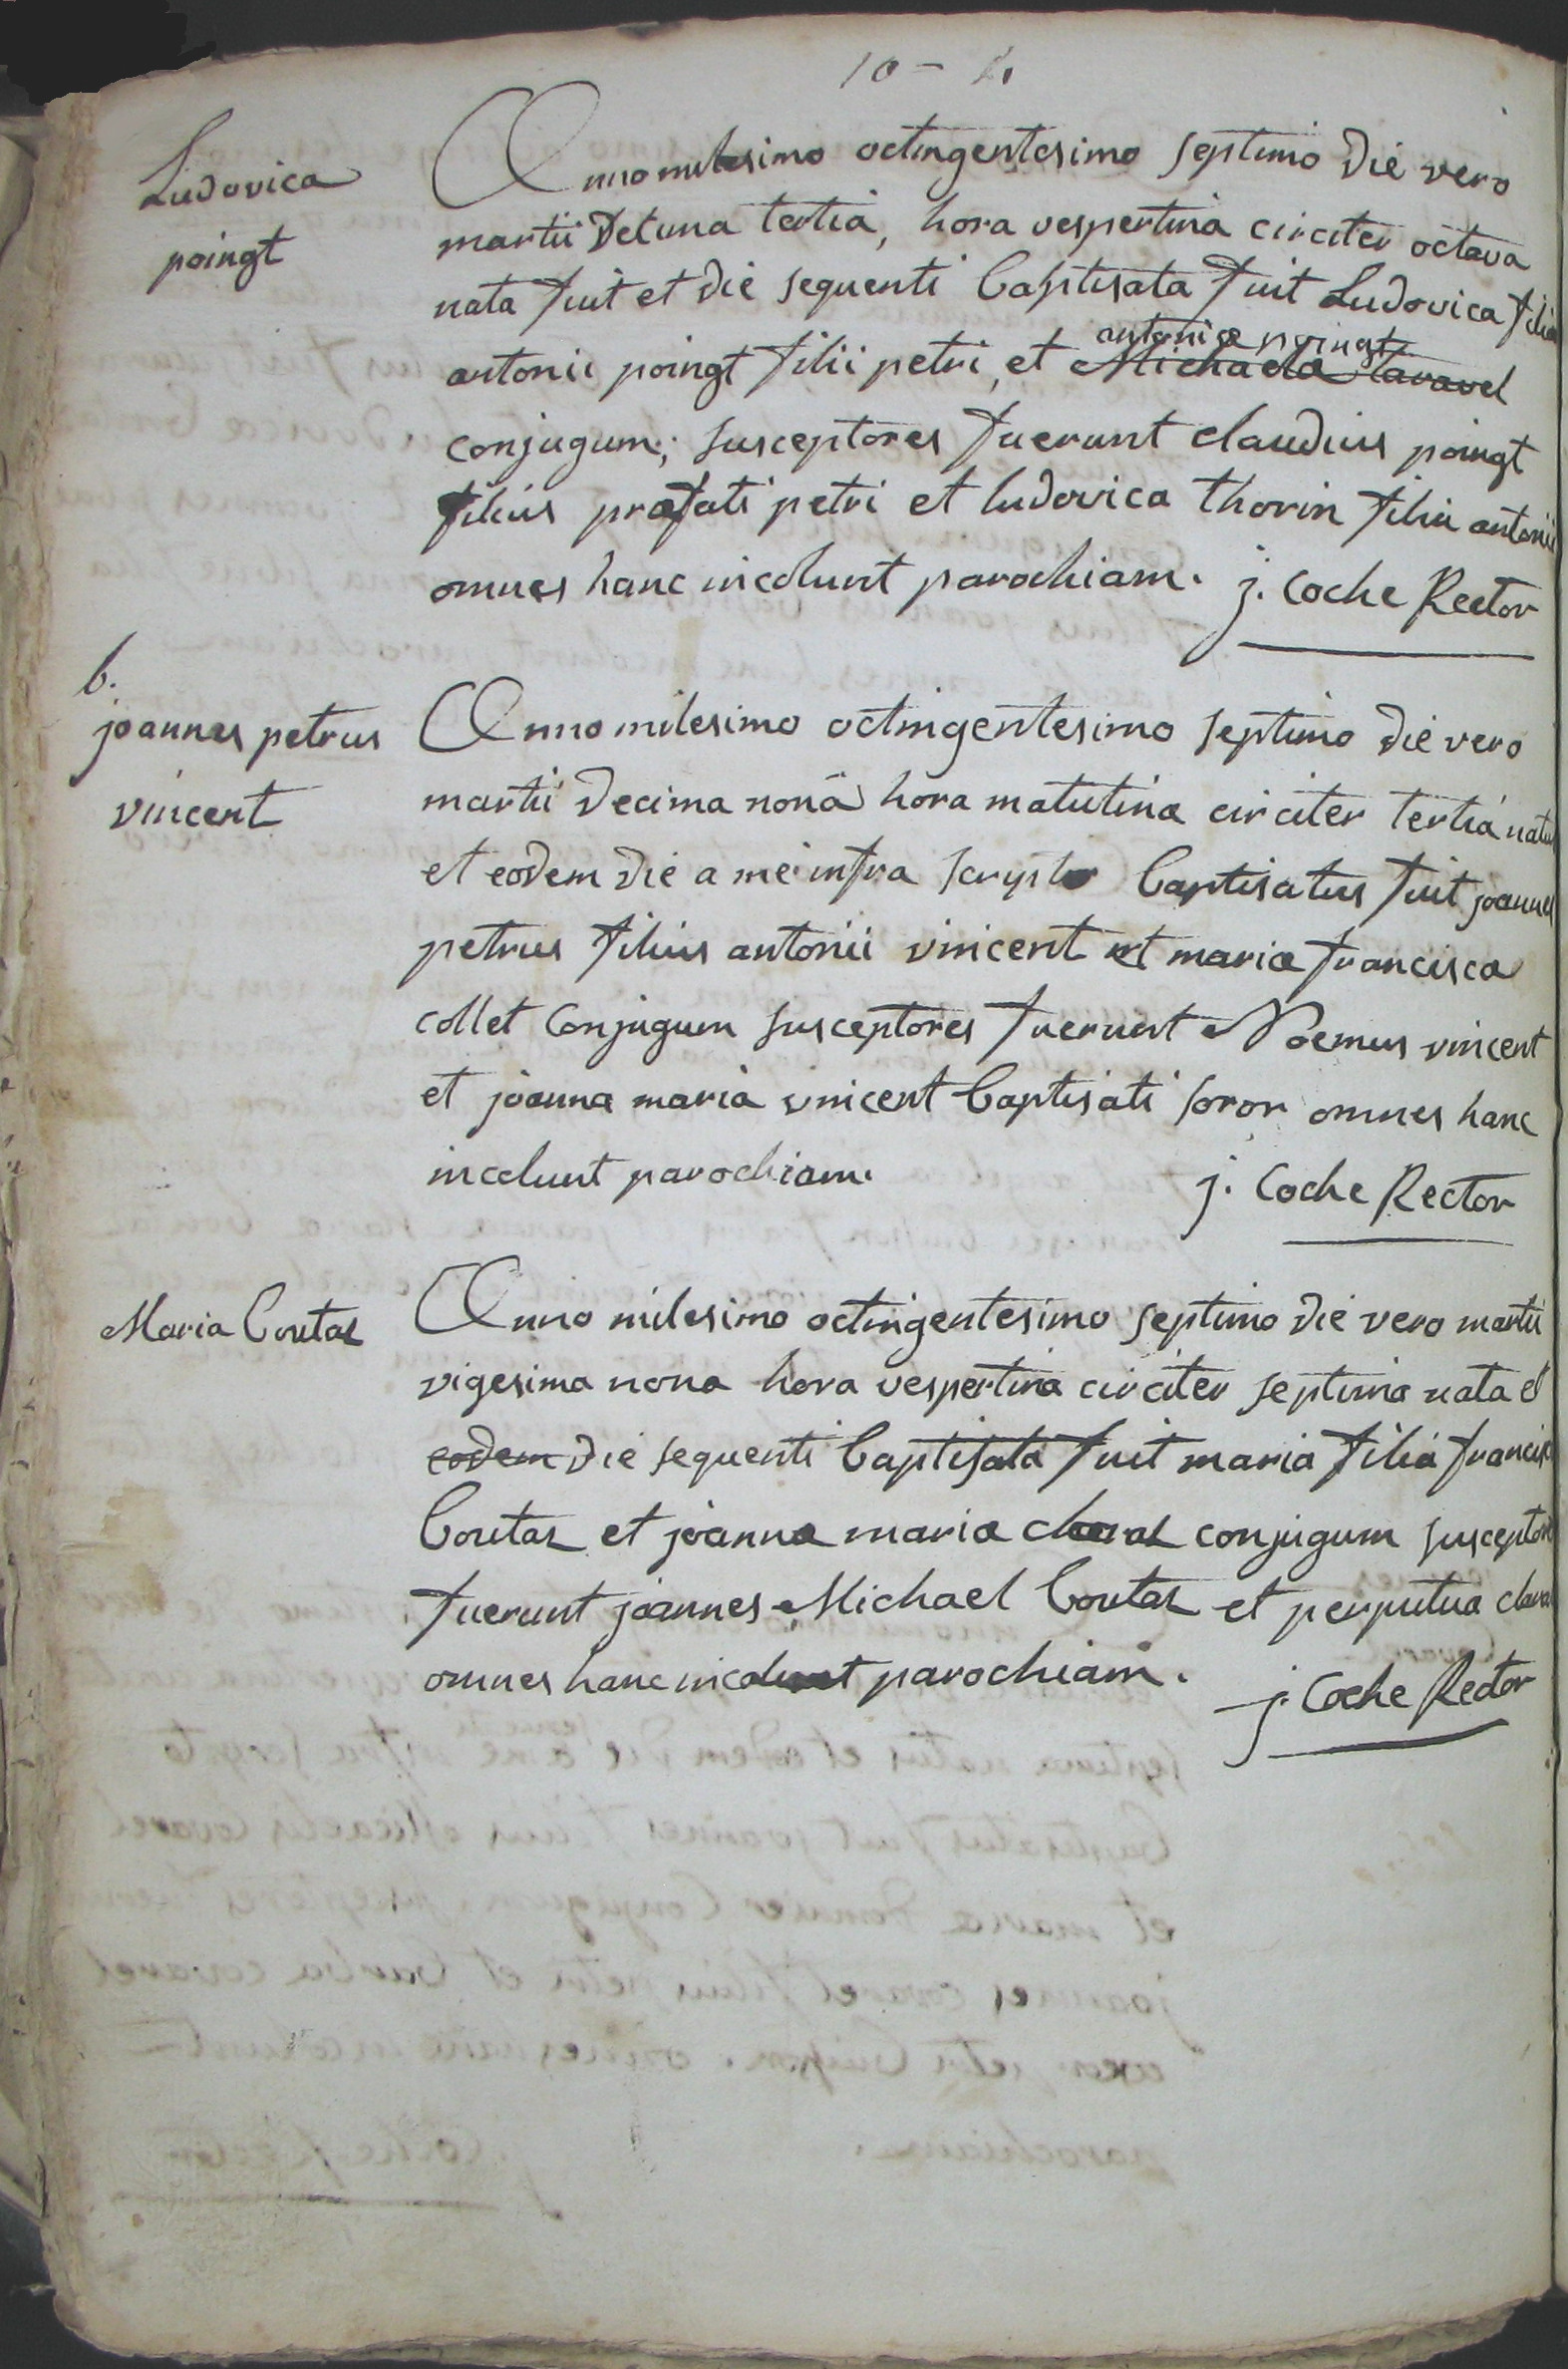 Ludovica
poingt
Anno milesimo octingentesimo septimo die vero
martii decima tertia, hora vespertina circiter octava
nata fuit et die sequenti baptisata fuit Ludovica filia
antoniæ poingt
antonii poingt filii petri, et Michaela
conjugum; susceptores fuerunt claudius poingt
filius præfati petri et ludovica thorin filia antonii
omnes hanc incolunt parochiam. j. Coche Rector
b.
joannes petrus
vincent
Anno milesimo octingentesimo septimo die vero
martii decima nona hora matutina circiter tertia natus
et eodem die a me infra scripto baptisatus fuit joannes
petrus filius antonii vincent et mariæ francisca
collet conjugum susceptores fuerunt Noemus vincent
et joanna maria vincent baptisati soror omnes hanc
incolunt parochiam. j. Coche Rector
Maria Coutaz
Anno milesimo octingentesimo septimo die vero martii
vigesima nona hora vespertina circiter septima nata et
eodem die sequenti baptisata fuit maria filia francisci
Coutaz et joannæ mariæ conjugum susceptores
fuerunt joannes Michael Coutaz et perpetua
omnes hanc incolunt parochiam. j. Coche Rector